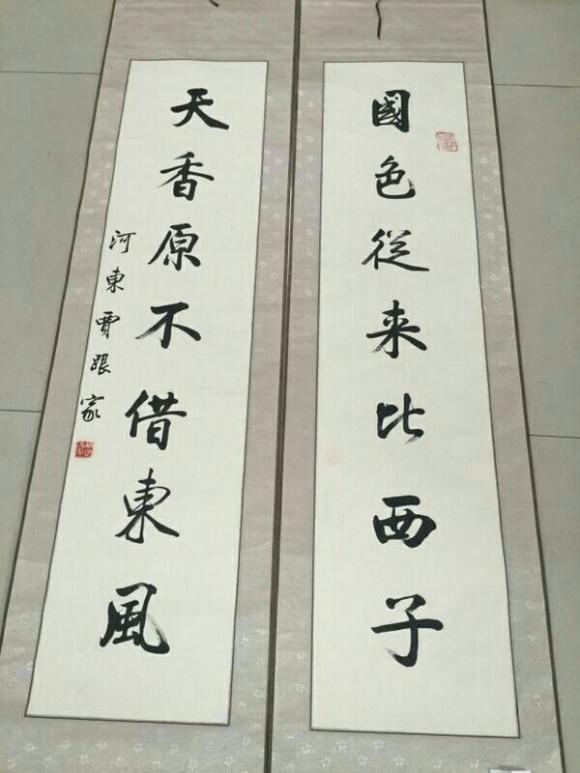 國色從来比西子
天香原不借東風
河東賈跟家